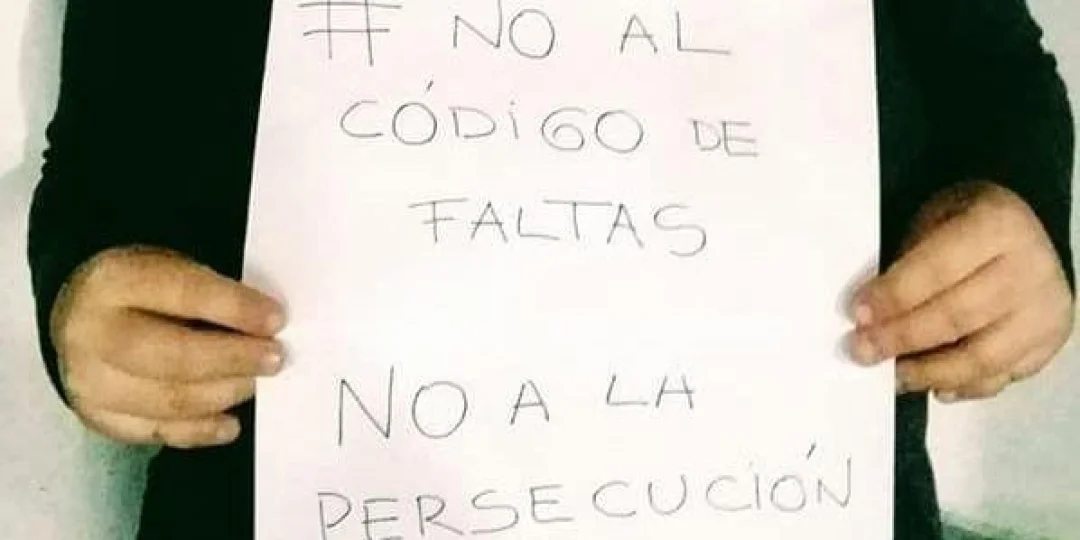 # NO AL
CÓDIGO DE
FALTAS
NO A LA
PERSECUCIÓN